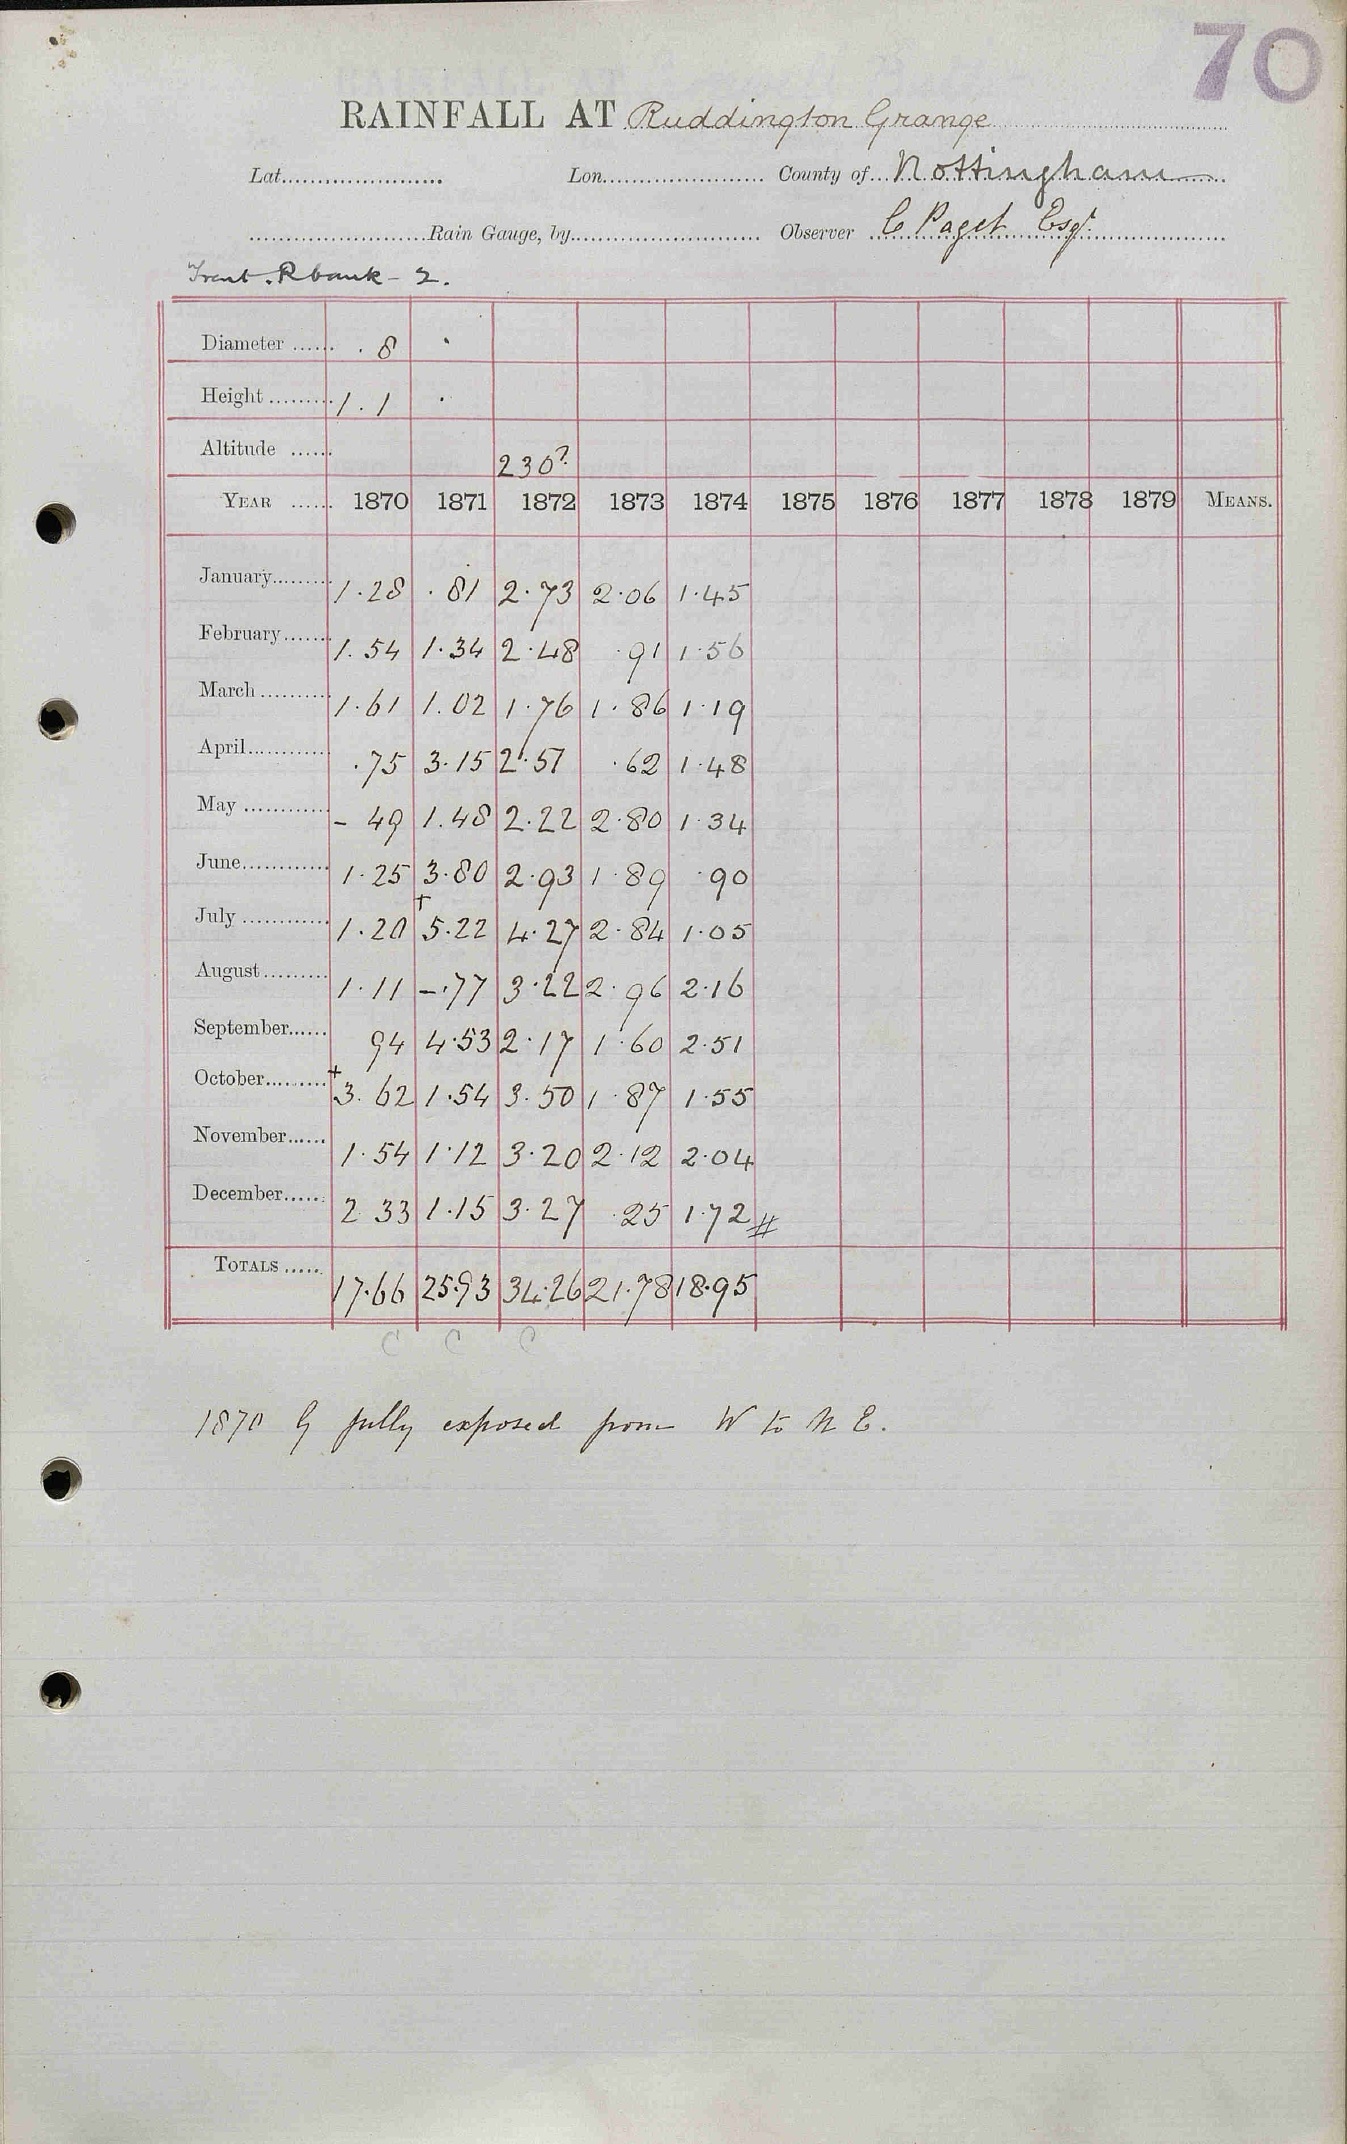 70
RAINFALL AT Ruddington Grange
Lat. Lon. County of Nottingham
Rain Gauge, by Observer C Paget Esqr
Trent. R bank - 2.
Diameter . 8 .
Height 1.1 .
Altitude 230?
YEAR 1870 1871 1872 1873 1874 1875 1876 1877 1878 1879 MEANS.
January 1.28 .81 2.73 2.06 1.45
February 1.54 1.34 2.48 .91 1.56
March 1.61 1.02 1.76 1.86 1.19
April .75 3.15 2.51 .62 1.48
May - 49 1.48 2.22 2.80 1.34
June 1.25 3.80 2.93 1.89 .90
July 1.20 + 5.22 4.27 2.84 1.05
August 1.11 -.77 3.22 2.96 2.16
September 94 4.53 2.17 1.60 2.51
October + 3.62 1.54 3.50 1.87 1.55
November 1.54 1.12 3.20 2.12 2.04
December 2 33 1.15 3.27 .25 1.72 #
TOTALS 17.66 25.93 34.26 21.78 18.95
C C C
1870 G fully exposed from W to N E.